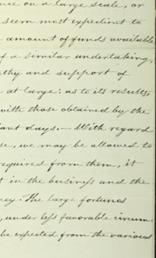 on a large scale, or
seem most expedient to
amount of funds available
of a similar undertaking,
thy and support of
at large: as to its results,
with those obtained by the
ant days. With regard
se, we may be allowed to
required from them, it
t in the business and the
ney. The large fortunes
under less favorable circum
be expected from the various